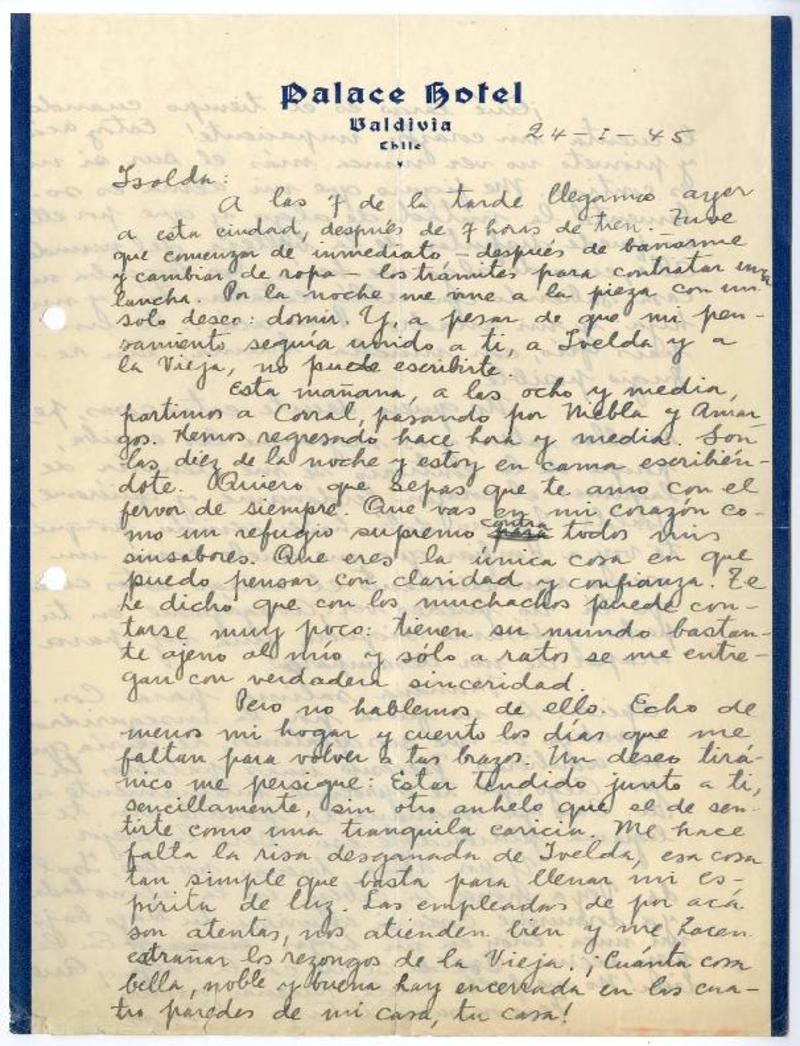 Palace Hotel
Valdivia
Chile
24-I-45
Isolda:
A las 7 de la tarde llegamos ayer
a esta ciudad, después de 7 horas de tren. Tuve
que comenzar de inmediato - después de bañarme
y cambiar de ropa - los trámites para contratar una
lancha. Por la noche me vine a la pieza con un
solo deseo: dormir. Y, a pesar de que mi pen-
samiento seguía unido a ti, a Ivelda y a
la Vieja, no pude escribirte.
Esta mañana, a las ocho y media,
partimos a Corral, pasando por Niebla y Amar-
gos. Hemos regresado hace hora y media. Son
las diez de la noche y estoy en cama escribién-
dote. Quiero que sepas que te amo con el
fervor de siempre. Que vas en mi corazón co-
mo un refugio supremo para contra todos mis
sinsabores. Que eres la única cosa en que
puedo pensar con claridad y confianza. Te
he dicho que con los muchachos puede con-
tarse muy poco: tienen su mundo bastan-
te ajeno al mío y sólo a ratos se me entre-
gan con verdadera sinceridad.
Pero no hablemos de ello. Echo de
menos mi hogar y cuento los días que me
faltan para volver a tus brazos. Un deseo tirá-
nico me persigue: Estar tendido junto a ti,
sencillamente, sin otro anhelo que el de sen-
tirte como una tranquila caricia. Me hace
falta la risa desganada de Ivelda, esa cosa
tan simple que basta para llenar mi es-
píritu de luz. Las empleadas de por acá
son atentas, nos atienden bien y me hacen
extrañar los rezongos de la Vieja. ¡Cuánta cosa
bella, noble y buena hay encerrada en las cua-
tro paredes de mi casa, tu casa!